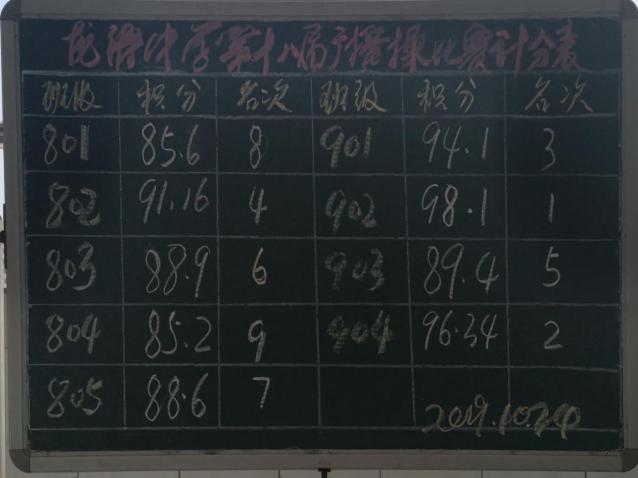 龙港中学第十八届广播操比赛计分表
班级 积分 名次 班级 积分 名次
801 85.6 8 901 94.1 3
802 91.16 4 902 98.1 1
803 88.9 6 903 89.4 5
804 85.2 9 904 96.34 2
805 88.6 7
2019.10.24